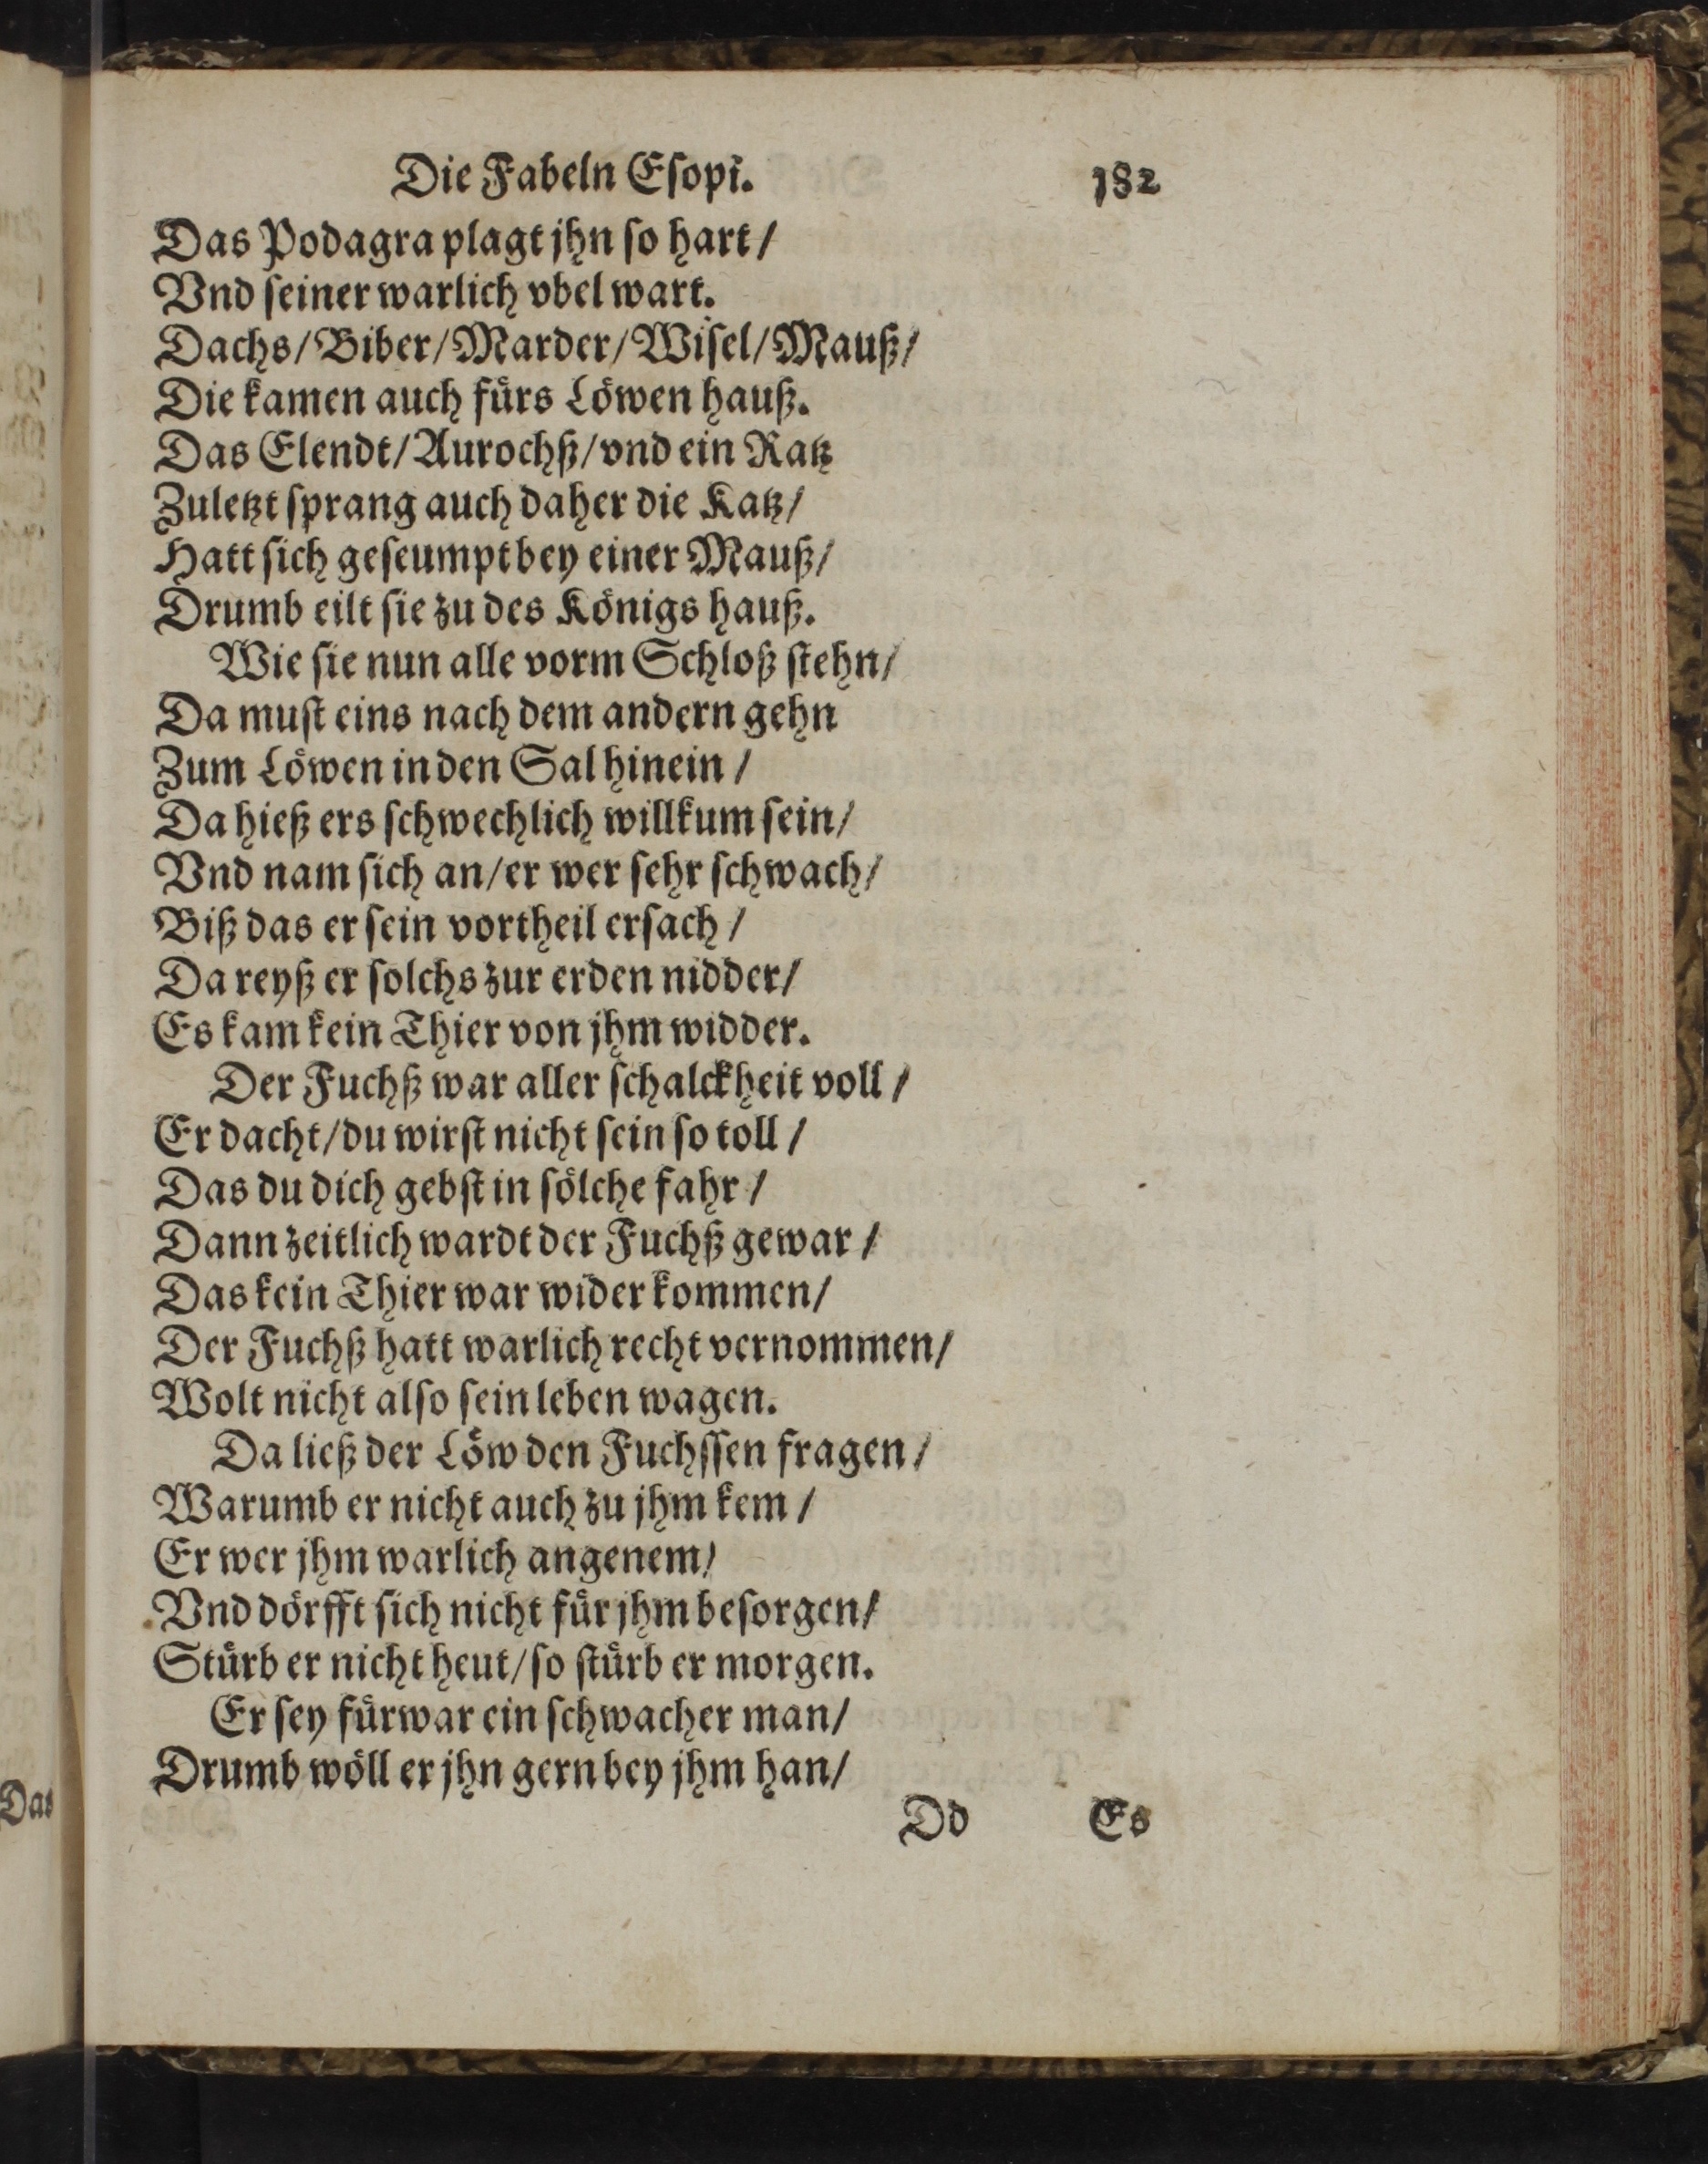 Die Fabeln Eſopi. 182
Das Podagra plagt jhn ſo hart /
Vnd ſeiner warlich vbel wart.
Dachs / Biber / Marder / Wiſel / Mauß /
Die kamen auch fürs Löwen hauß.
Das Elendt / Aurochß / vnd ein Ratz
Zuletzt ſprang auch daher die Katz /
Hatt ſich geſeumpt bey einer Mauß /
Drumb eilt ſie zu des Königs hauß.
Wie ſie nun alle vorm Schloß ſtehn /
Da muſt eins nach dem andern gehn
Zum Löwen in den Sal hinein /
Da hieß ers ſchwechlich willkum ſein /
Vnd nam ſich an / er wer ſehr ſchwach /
Biß das er ſein vortheil erſach /
Da reyß er ſolchs zur erden nidder /
Es kam kein Thier von jhm widder.
Der Fuchß war aller ſchalckheit voll /
Er dacht / du wirſt nicht ſein ſo toll /
Das du dich gebſt in ſölche fahr /
Dann zeitlich wardt der Fuchß gewar /
Das kein Thier war wider kommen /
Der Fuchß hatt warlich recht vernommen /
Wolt nicht alſo ſein leben wagen.
Da ließ der Löw den Fuchſſen fragen /
Warumb er nicht auch zu jhm kem /
Er wer jhm warlich angenem /
Vnd dörfft ſich nicht für jhm beſorgen /
Stürb er nicht heut / ſo ſtürb er morgen.
Er ſey fürwar ein ſchwacher man /
Drumb wöll er jhn gern bey jhm han /
Das
Dd Es